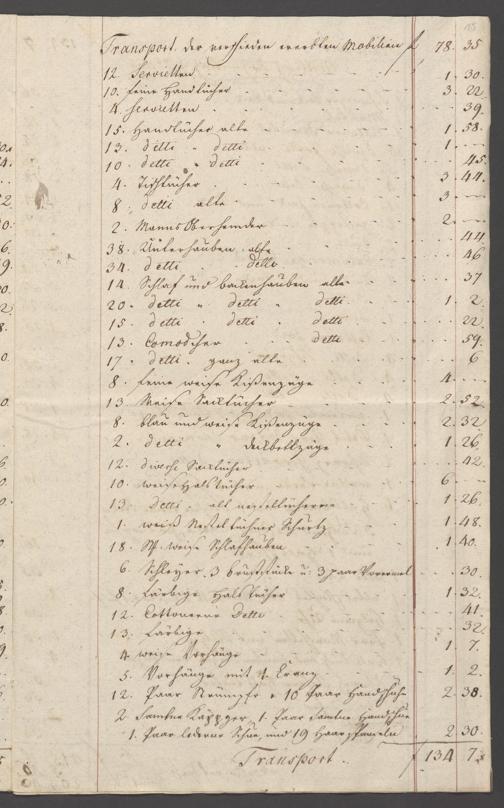 15
Transport der verschieden ererbten Mobilien f 78. 35
12. Servietten 1. 30.
10. feine Handtücher 3. 22
4. Servietten 39.
15. Handtücher alte 1. 58.
13. detti detti 1.
10. detti " detti 45.
4. Tischtücher 3 44.
8. detti alte 3
2. Manns Oberhemder 2.
38. Unterhauben alte 44
34. detti detti 46
14. Schlaf und hauben alte 37
20. detti " detti detti 1. 2.
15. detti detti " detti 22.
13. detti 59.
17. detti. ganz alte 6
8. feine weise Kißenzüge 4.
13 Weise Sacktücher 2. 52.
8. blau und weise Kißenzüge 2. 32
2. detti " deckbettzüge 1. 26
12. Sacktücher 42.
10. weise Halstücher 6
13. detti. alt 1. 26.
1. weiß Schurtz 1. 48.
18. weise Schlafhauben 1. 40.
6. Schleyer, 3 bruststücke u: 3 paar 30.
8. färbige Halstücher 1. 32.
12. Cottonerne Detti 41.
13. färbige 32
4. weise Vorhänge 1. 7.
5. Vorhänge mit 1. Cranz 1. 2.
12. Paar Strümpfe u 10 Paar Handschuhe 2. 38.
2. 1. Paar
1. Paar lederne und 19 2. 30.
Transport. f 134 7.